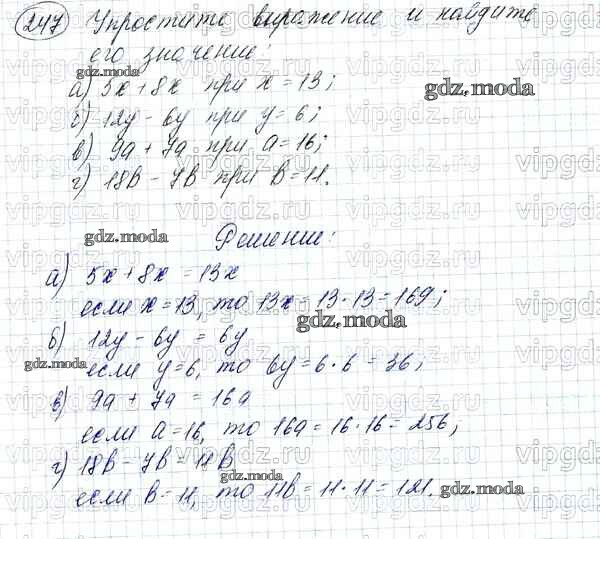 247 Упростите выражение и найдите
его значение:
а) 5x + 8x при x = 13;
б) 12y - 6y при y = 6;
в) 9a + 7a при a = 16;
г) 18в - 7в при в = 11.
Решение:
а) 5x + 8x = 13x
если x = 13, то 13x = 13 · 13 = 169;
б) 12y - 6y = 6y
если y = 6, то 6y = 6 · 6 = 36;
в) 9a + 7a = 16a
если a = 16, то 16a = 16 · 16 = 256,
г) 18в - 7в = 11в
если в = 11, то 11в = 11 · 11 = 121.
gdz.moda
gdz.moda
gdz.moda
gdz.moda
gdz.moda
gdz.moda
vipgdz.ru